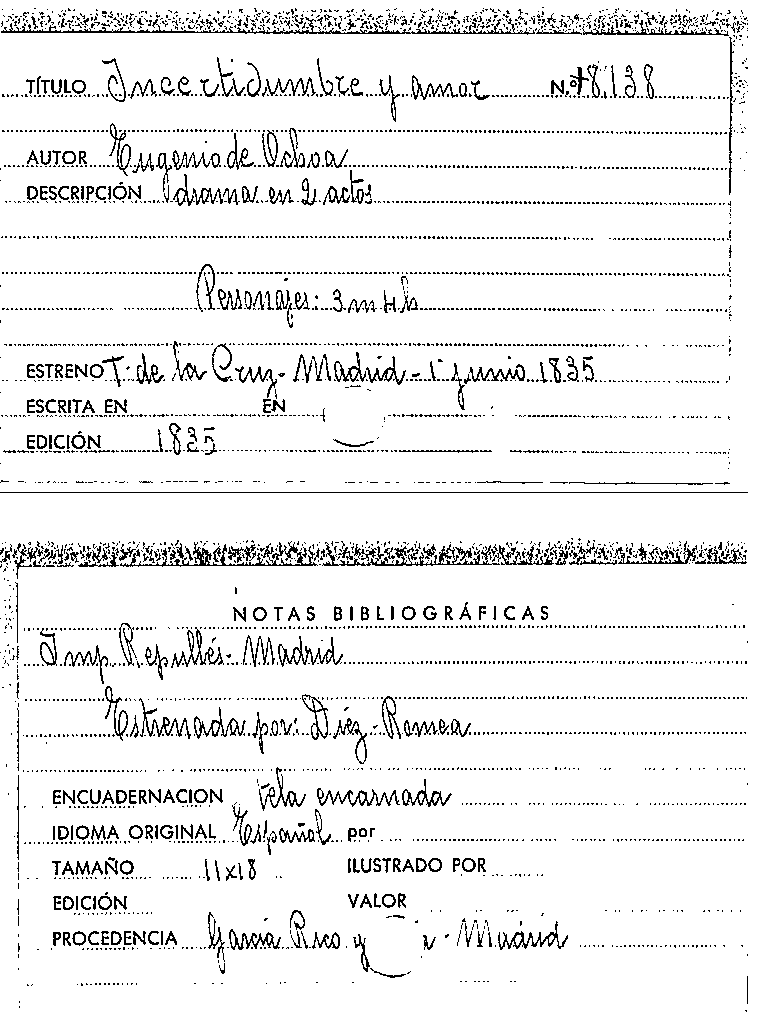 TÍTULO Incertidumbre y amor N.º 78.138
AUTOR Eugenio de Ochoa
DESCRIPCIÓN drama en 2 actos
Personajes: 3m 4h
ESTRENO T. de la Cruz - Madrid - 1º junio 1835
ESCRITA EN EN
EDICIÓN 1835
NOTAS BIBLIOGRÁFICAS
Imp. Repullés - Madrid
Estrenada por: Díez - Romea
ENCUADERNACION tela encarnada
IDIOMA ORIGINAL Español por
TAMAÑO 11x18 ILUSTRADO POR
EDICIÓN VALOR
PROCEDENCIA García Rico y - Madrid